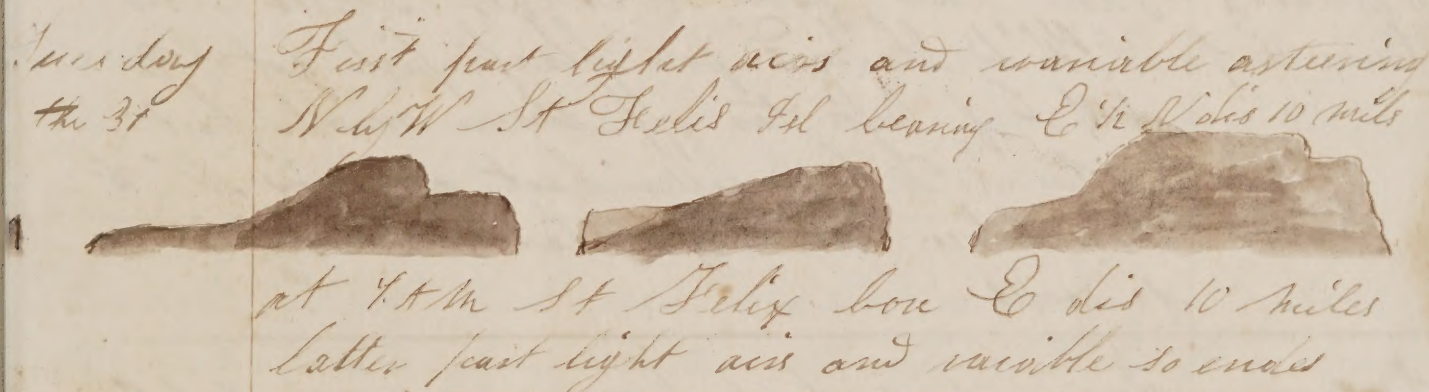 Tuesday First part light airs and variable asteering
the 31 N by W St Felis Isl bearing E ½ N dis 10 miles
at 4 A M St Felix bore E dis 10 miles
latter part light airs and vaible so endes